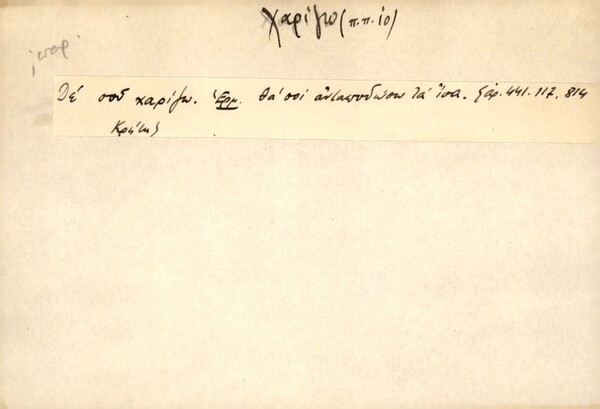 Χαρίζω (π.π. ίο)
Δέ σοῦ χαρίζω. Ἑρμ. θά σοί ἀνταποδώσω τά ἴσα. ἀρ. 441. 117, 814
Κρήτης